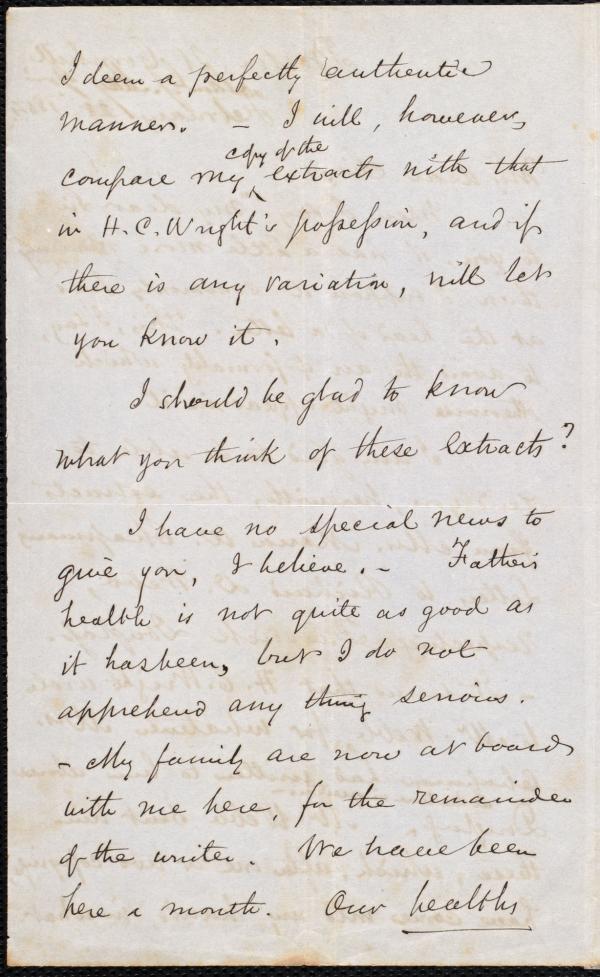 I deem a perfectly authentic
manner. – I will, however,
copy of the
compare my ‸ extracts with that
in H. C. Wright's possession, and if
there is any variation, will let
you know it.
I should be glad to know
what you think of these extracts?
I have no special news to
give you, I believe. – Father's
health is not quite as good as
it has been, but I do not
apprehend any thing serious.
– My family are now at board
with me here, for the remainder
of the winter. We have been
here a month. Our healths